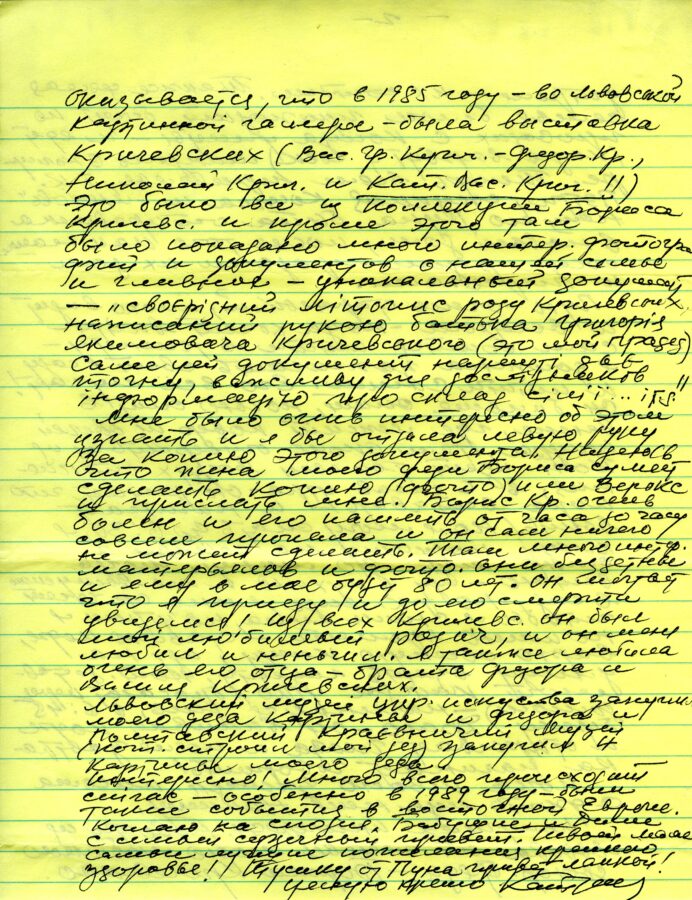 оказывается, что в 1985 году – во Львовской
картинной галере – была выставка
Кричевских (Вас. Гр. Крич. – Федор. Кр.,
Николай Крич. и Кат. Вас. Крич. !!)
Это было все из коллекции Бориса
Кричевс. и кроме этого там
было показано много интер. фотогра
фий и документов о нашей семье
и главное – уникальный документ
– „своєрідний літопис роду Кричевських,
написаний рукою батька Григорія
Якимовача Кричевського (это мой прадед)
Саме цей документ нарешті дав
точну, важливу для дослідників
інформацію про склад сімїї ... "
Мне было очень интересно об этом
узнать и я бы отдала левую руку
за копию этого документа! Надеюсь
что жена моего дяди Бориса сумеет
сделать копию (фото) или Верокс
и прислать мне. Борис Кр. очень
болен и его память от часа до часу
совсем пропала и он сам ничего
не может сделать. Там много интер.
матерьялов и фото. Они бездетны
и ему в мае будет 80 лет. Он мечтает
что я приеду и до его смерти
увидемся! Из всех Кричевс. он был
мой любимый родич, и он меня
любил и неньчил. Я также любила
очень его отца – брата Федора и
Васил Кричевских.
Львовский музей укр. искуства закупил
моего деда картины и Федора и
Полтавский Краєвничий Музей
(кот. строил мой дед) закупил 4
картины моего деда
Интересно! Много всего происходит
сейчас – особенно в 1989 году – были
такие события в восточной Европе.
Бабушке и
с самый сердечный привет. Твоей маме
самые лучшие пожелания крепкого
здоровье!! Тусику от Пуна привет лапкой!
целую крепко